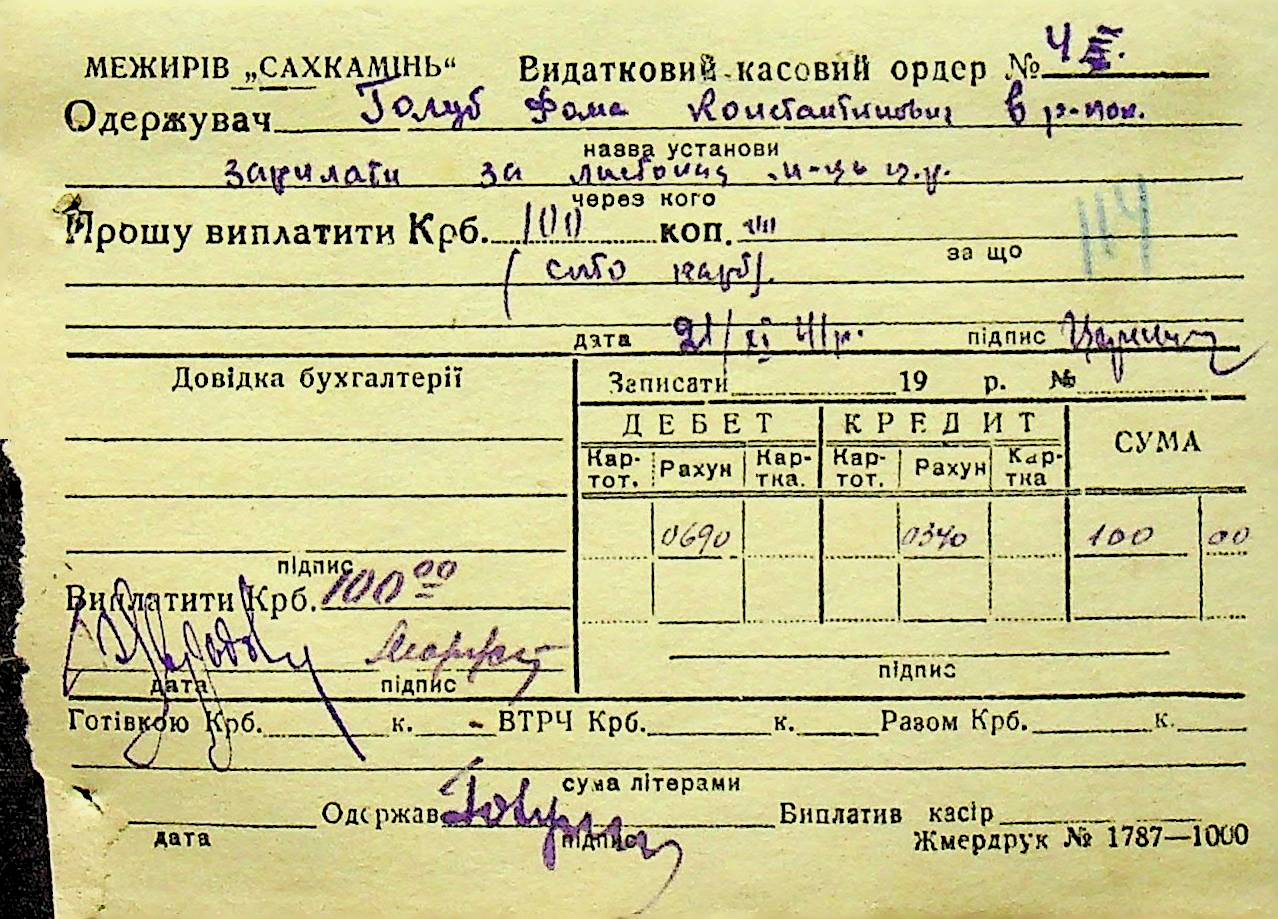 МЕЖИРІВ „САХКАМІНЬ“ Видатковий касовий ордер № 4
Одержувач Голуб Фома Константинович в р-нок.
назва установи
зарплати за листопад м-ць ц.р.
через кого
Прошу виплатити Крб. 100 коп.
за що 114
(сто карб).
дата 21/XI 41р. підпис
Довідка бухгалтерії
Записати 19 р. №
ДЕБЕТ КРЕДИТ СУМА
Кар-тот. Рахун Кар-тка. Кар-тот. Рахун Кар-тка
0690 0340 100 00
підпис
Виплатити Крб. 100 00
дата підпис
підпис
Готівкою Крб. к. - ВТРЧ Крб. к. Разом Крб. к.
сума літерами
Одержав Виплатив касір
дата підпис Жмердрук № 1787—1000